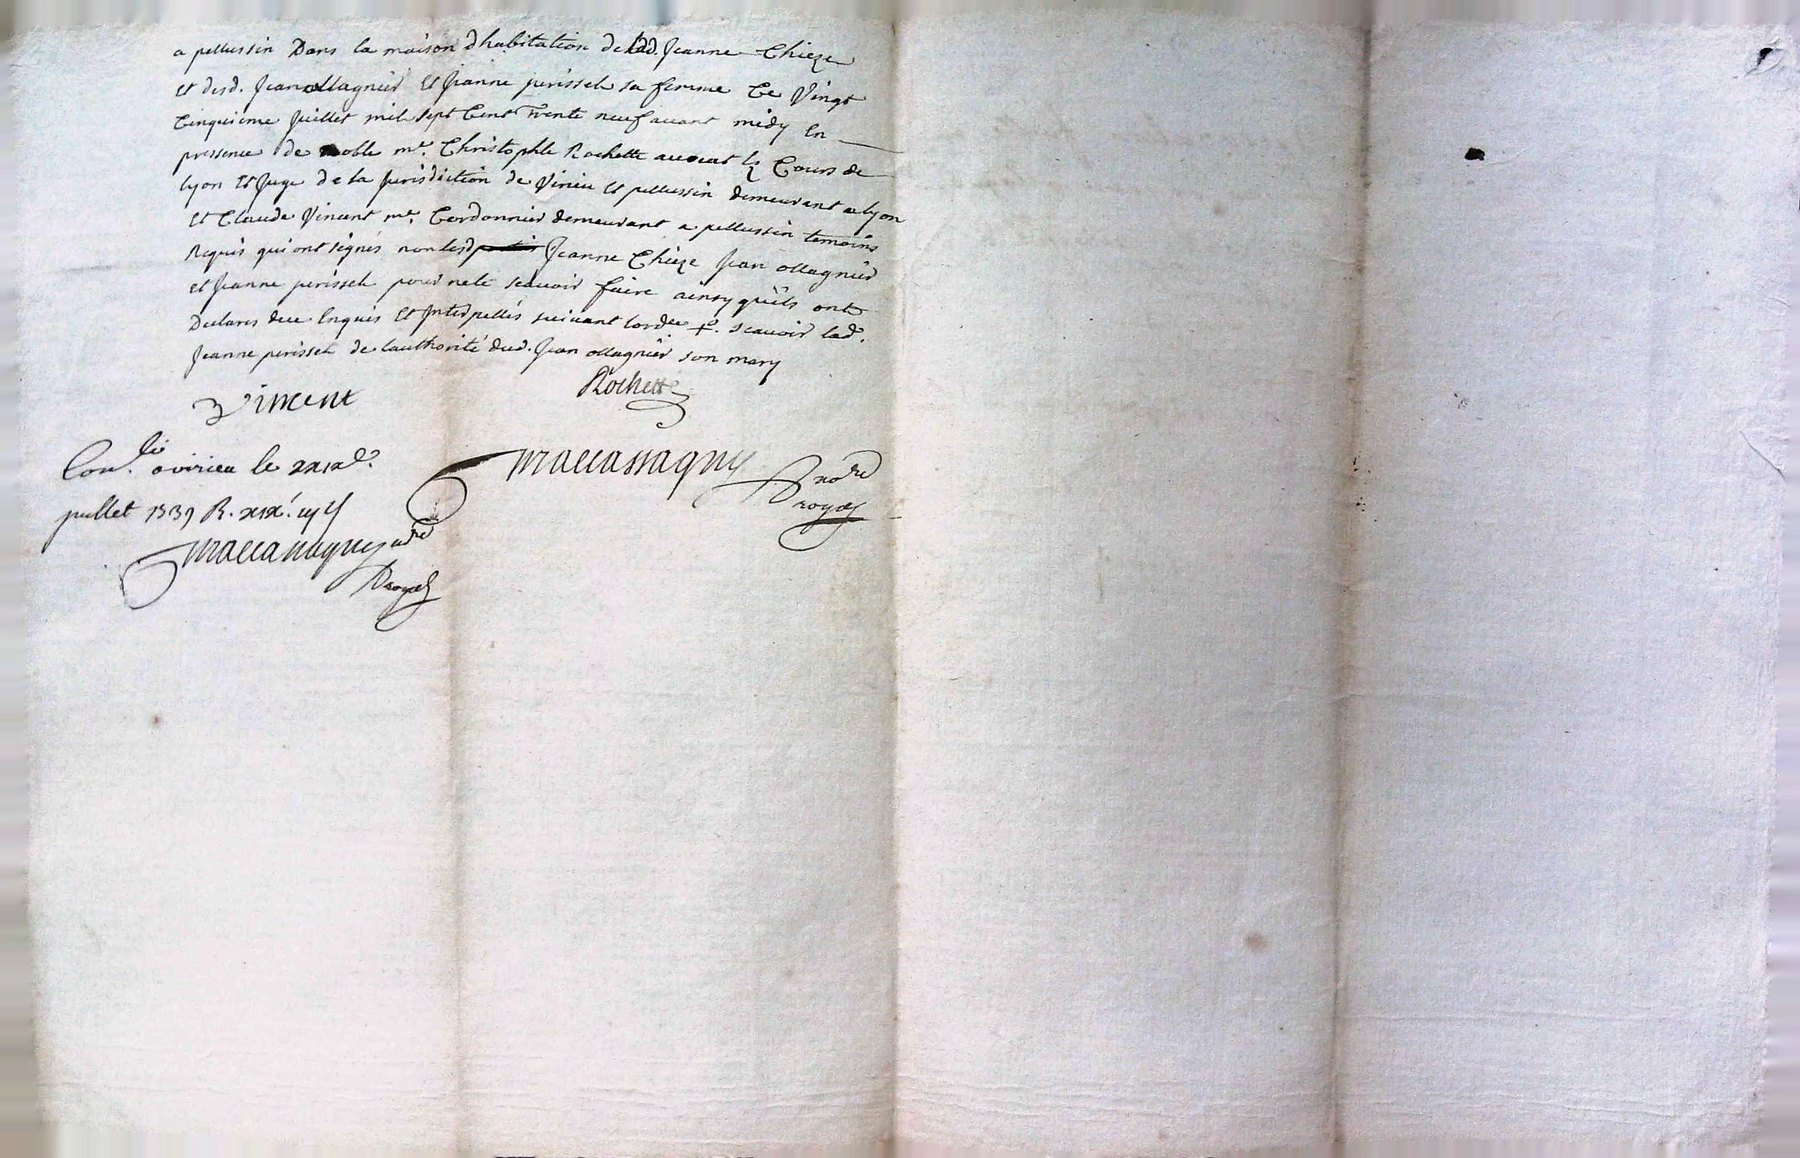 a pellussin Dans la maison dhabitation de lad. Jeanne Chieze
et desd. Jean ollagnier et Jeanne perissel sa femme Ce Vingt
Cinquieme Juillet mil sept Cent Trente neuf avant midy En
presence de noble mr. Christophle Rochette avocat ez Cours de
Lyon et Juge de la Jurisdiction de Virieu et pellussin demeurant a lyon
et Claude Vincent me. Cordonnier demeurant a pellussin temoins
Requis qui ont signés non lesd. Jeanne Chieze Jean ollagnier
et Jeanne perissel pour ne le scavoir faire ainsy quils ont
Declarés de ce Enquis et Interpellés suivant lordce. scavoir lad.
Jeanne perissel de lauthorité dud. Jean ollagnier son mary
Vincent
Rochette
maccassagny nore
royal
Conlé. a virieu le xxixe.
juillet 1739 R.
maccassagny
Royal